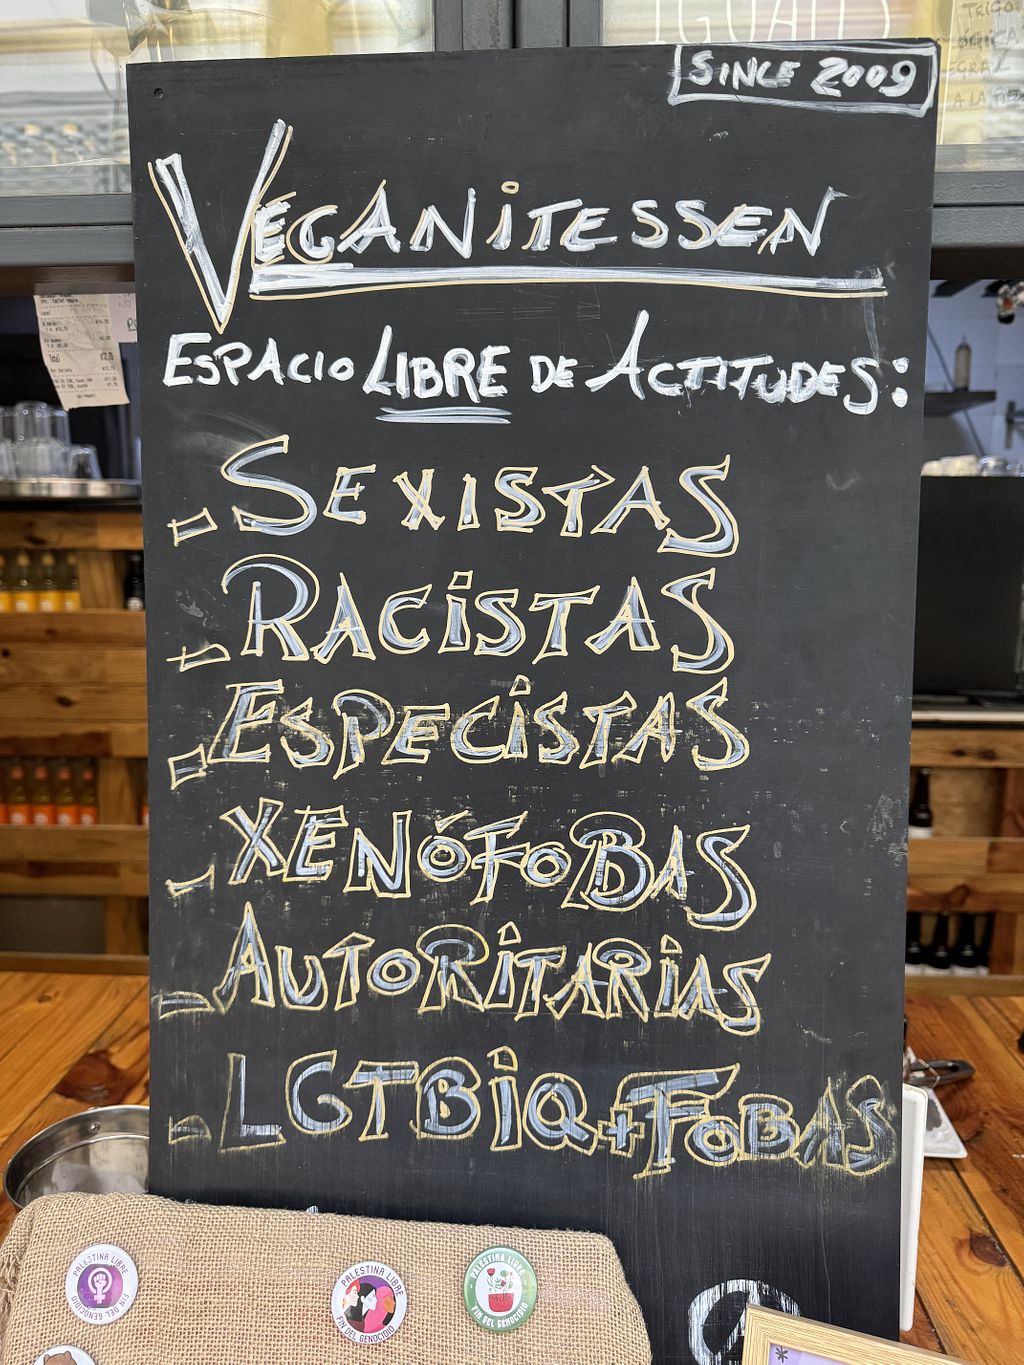 IGUALES
TRIGO
SINCE 2009
A LA PIE
VEGANITESSEN
ESPACIO LIBRE DE ACTITUDES:
- SEXISTAS
- RACISTAS
- ESPECISTAS
- XENÓFOBAS
- AUTORITARIAS
- LGTBIQ+FOBAS
Total
HappyCow
PALESTINA LIBRE
FIN DEL GENOCIDIO
PALESTINA LIBRE
FIN DEL GENOCIDIO
PALESTINA LIBRE
FIN DEL GENOCIDIO